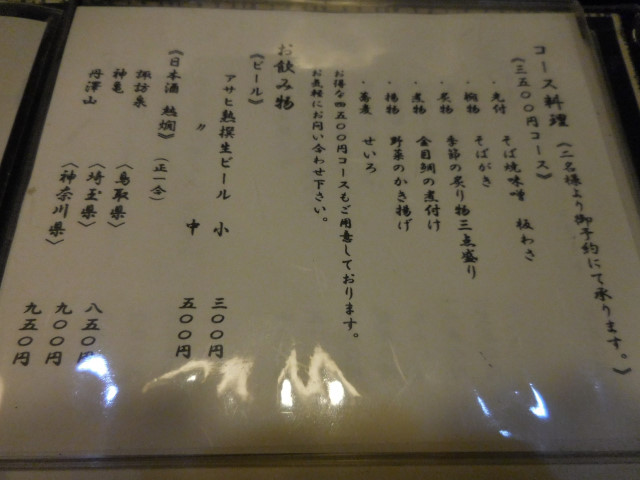 コース料理（二名様より御予約にて承ります。）
《三五〇〇円コース》
・先付　そば焼味噌　板わさ
・椀物　そばがき
・炙物　季節の炙り物三点盛り
・煮物　金目鯛の煮付け
・揚物　野菜のかき揚げ
・蕎麦　せいろ
お得な四五〇〇円コースもご用意しております。
お気軽にお問い合わせ下さい。
お飲み物
《ビール》
アサヒ熟撰生ビール　小　三〇〇円
〃　中　五〇〇円
《日本酒　熱燗》（正一合）
諏訪泉　〈鳥取県〉　八五〇円
神亀　〈埼玉県〉　九〇〇円
丹澤山　〈神奈川県〉　九五〇円